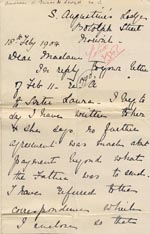 S. Augustine's Lodge
Botolph Street
Norwich
18th Feby 1904
Dear Madam
In reply to your letter
of Feb 11
Sister Laura. I beg to
say I have written to her
& she says no further
agreement was made about
payment beyond what
the Father was to send.
I have referred to the
correspondence which
I enclose so that